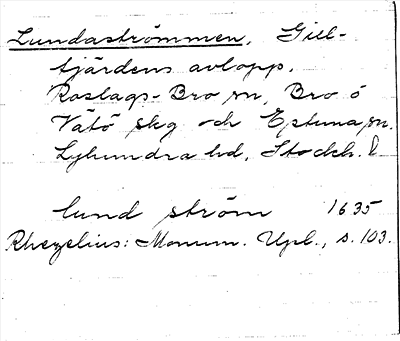 Lundaströmmen, Gill-
fjärdens avlopp.
Roslags-Bro sn, Bro ö
Vätö skg och Estuna sn.
Lyhundra hd, Stockh. l
lund ström 1635
Rhezelius: Monum. Upl., s. 103.